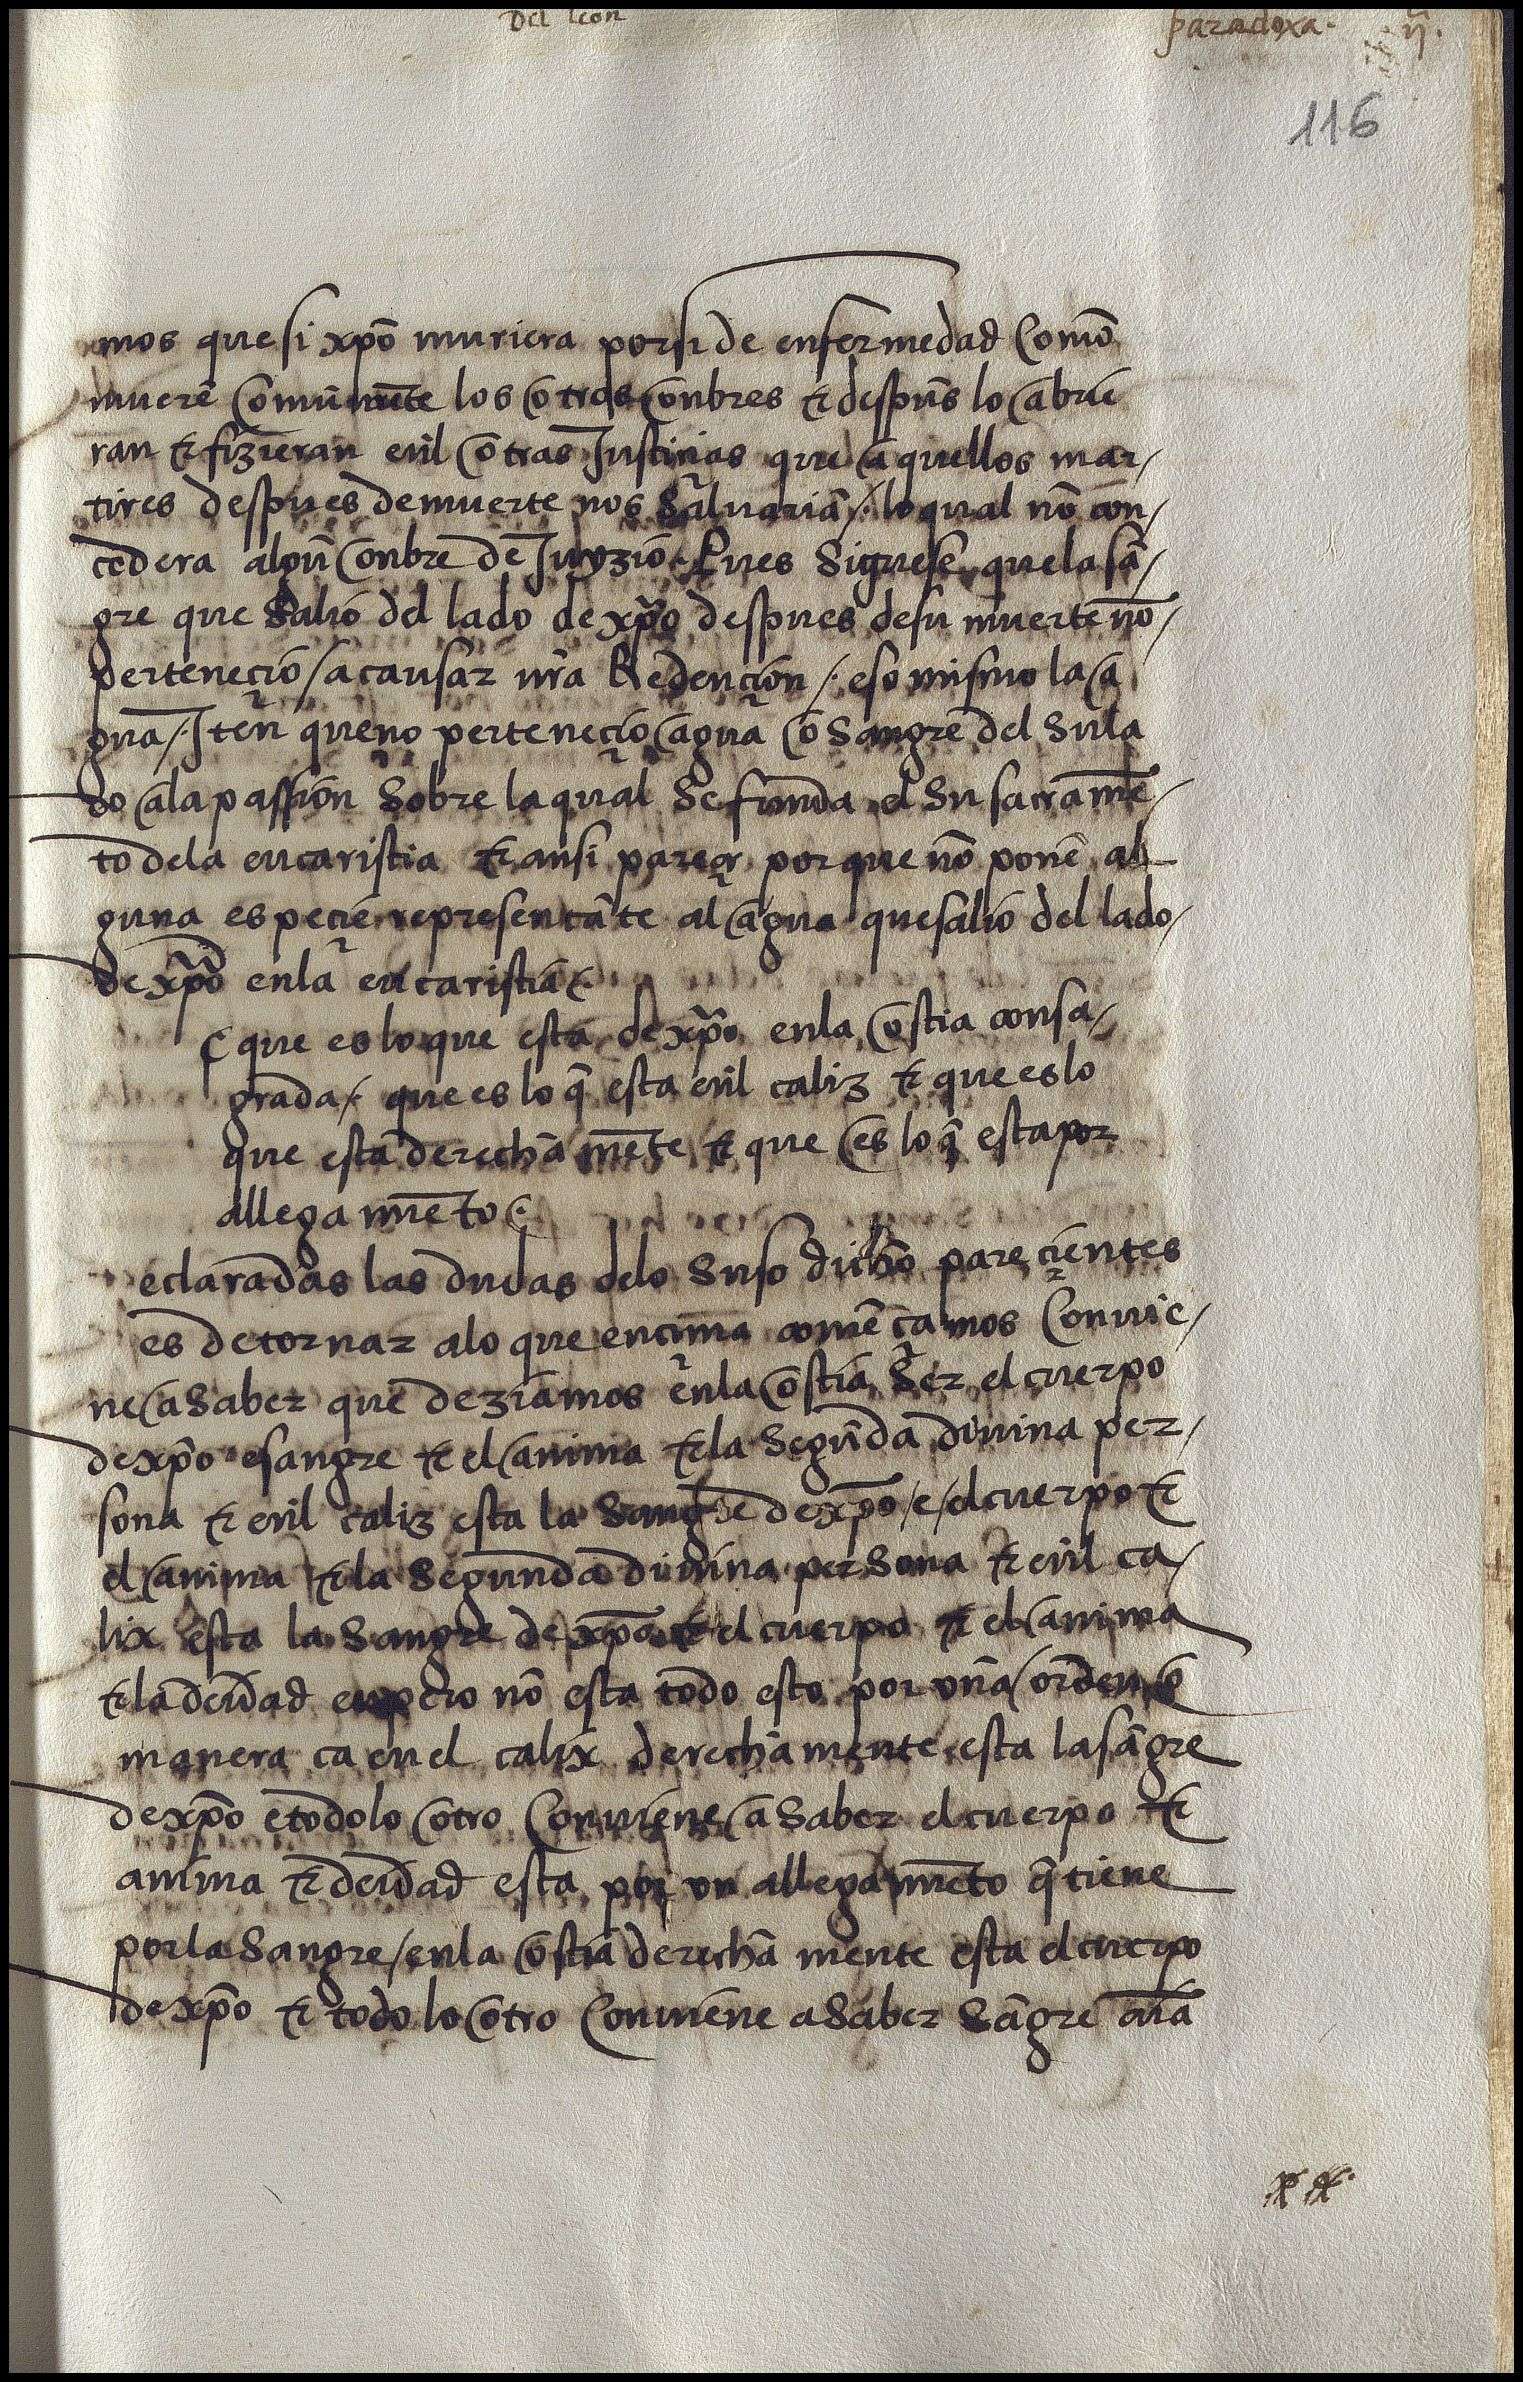 Del leon
paradoxa. ij.
116
mos que si xp̄o muriera por si de enfermedad Comō
muerē Comūmēte los otros onbres ⁊ despūs lo abrie
ran ⁊ fizieran enl otras Justicias que aquellos mar/
tires despues de muerte nos Saluariā/. lo qual nō con/
cedera algū onbre de Juyzio. Pues Siguese que la sā/
gre que Salio del lado de xp̄o despues de su muerte nō/
perteneçio/a causar nr̄a Redençion/. eso mismo la a
gua/. Iten que no perteneçio agua o Sangre del Su la
do a la passion Sobre la qual Se funda el Su sacramē/
to de la eucaristia ⁊ ansi pareçe porque nō ponē al
guna espeçie representāte al agua que salio del lado/
de xp̄o en la eucaristia/.
C que es lo que esta de xp̄o en la ostia consa/
grada/. que es lo q̄ esta enl caliz ⁊ que es lo
que esta derecha mēte ⁊ que es lo q̄ esta por
allega miēto/.
eclaradas las dudas de lo Suso dicho pareçientes
es de tornar a lo que encima comēçamos Convie/
ne a Saber que deziamos en la ostia Ser el cuerpo
de xp̄o e sangre ⁊ el anima ⁊ la Segūda diuina per/
sona ⁊ enl caliz esta la Sangre de xp̄o/e/el cuerpo ⁊
el anima ⁊ la Segunda diuina perSona ⁊ enl ca/
lix esta la Sangre de xp̄o ⁊ el cuerpo ⁊ el anima
⁊ la deidad enpero nō esta todo esto por vna orden o
manera ca en el calix derecha mente esta la sāgre
de xp̄o e todo lo otro Conviene a Saber el cuerpo ⁊
anima ⁊ deidad esta por vn allegamiēto q̄ tiene
por la Sangre/en la ostia derecha mente esta el cuerpo
de xp̄o ⁊ todo lo otro Conviene a Saber Sāgre aīa